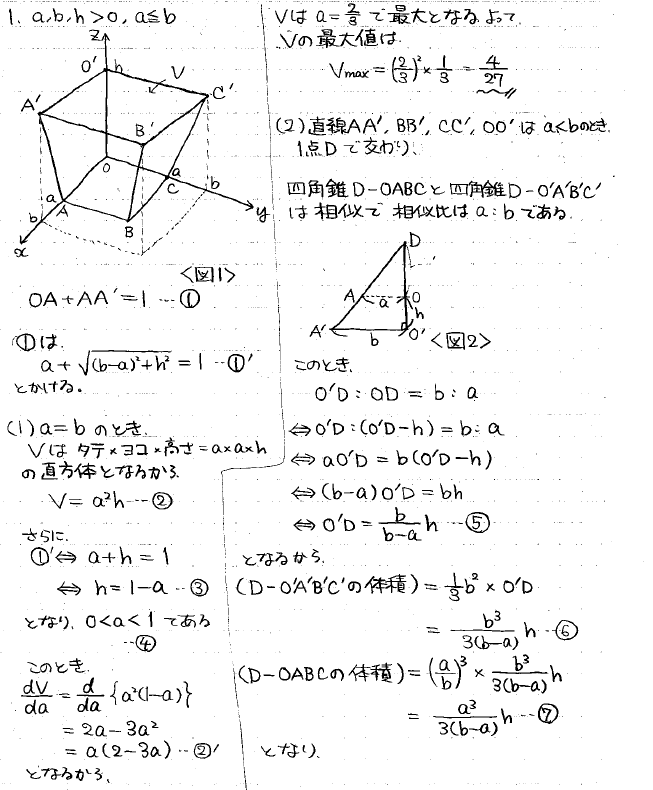 1. a,b,h>0, a≦b
z
O' h V
C'
A'
B'
O a
C b
a A
b B y
x
<図1>
OA+AA'=1 …①
①は
a+√((b-a)²+h²) = 1 …①'
とかける。
(1) a=b のとき、
Vは タテ×ヨコ×高さ=a×a×h
の直方体となるから
V=a²h …②
さらに
①'⇔ a+h=1
⇔ h=1-a …③
となり、0<a<1 である
…④
このとき、
dV/da = d/da {a²(1-a)}
= 2a-3a²
= a(2-3a) …②'
となるから、
Vは a=2/3 で最大となる よって
Vの最大値は
Vmax=(2/3)²×1/3=4/27
(2) 直線AA', BB', CC', OO' は a<bのとき、
1点Dで交わり、
四角錐D-OABCと四角錐D-O'A'B'C'
は相似で 相似比は a:b である
D
A a O
h
A' b O'
<図2>
このとき、
O'D:OD=b:a
⇔O'D:(O'D-h)=b:a
⇔aO'D=b(O'D-h)
⇔(b-a)O'D=bh
⇔O'D=b/(b-a) h …⑤
となるから
(D-O'A'B'C'の体積)=1/3 b²×O'D
= b³/3(b-a) h …⑥
(D-OABCの体積)=(a/b)³×b³/3(b-a) h
= a³/3(b-a) h …⑦
となり